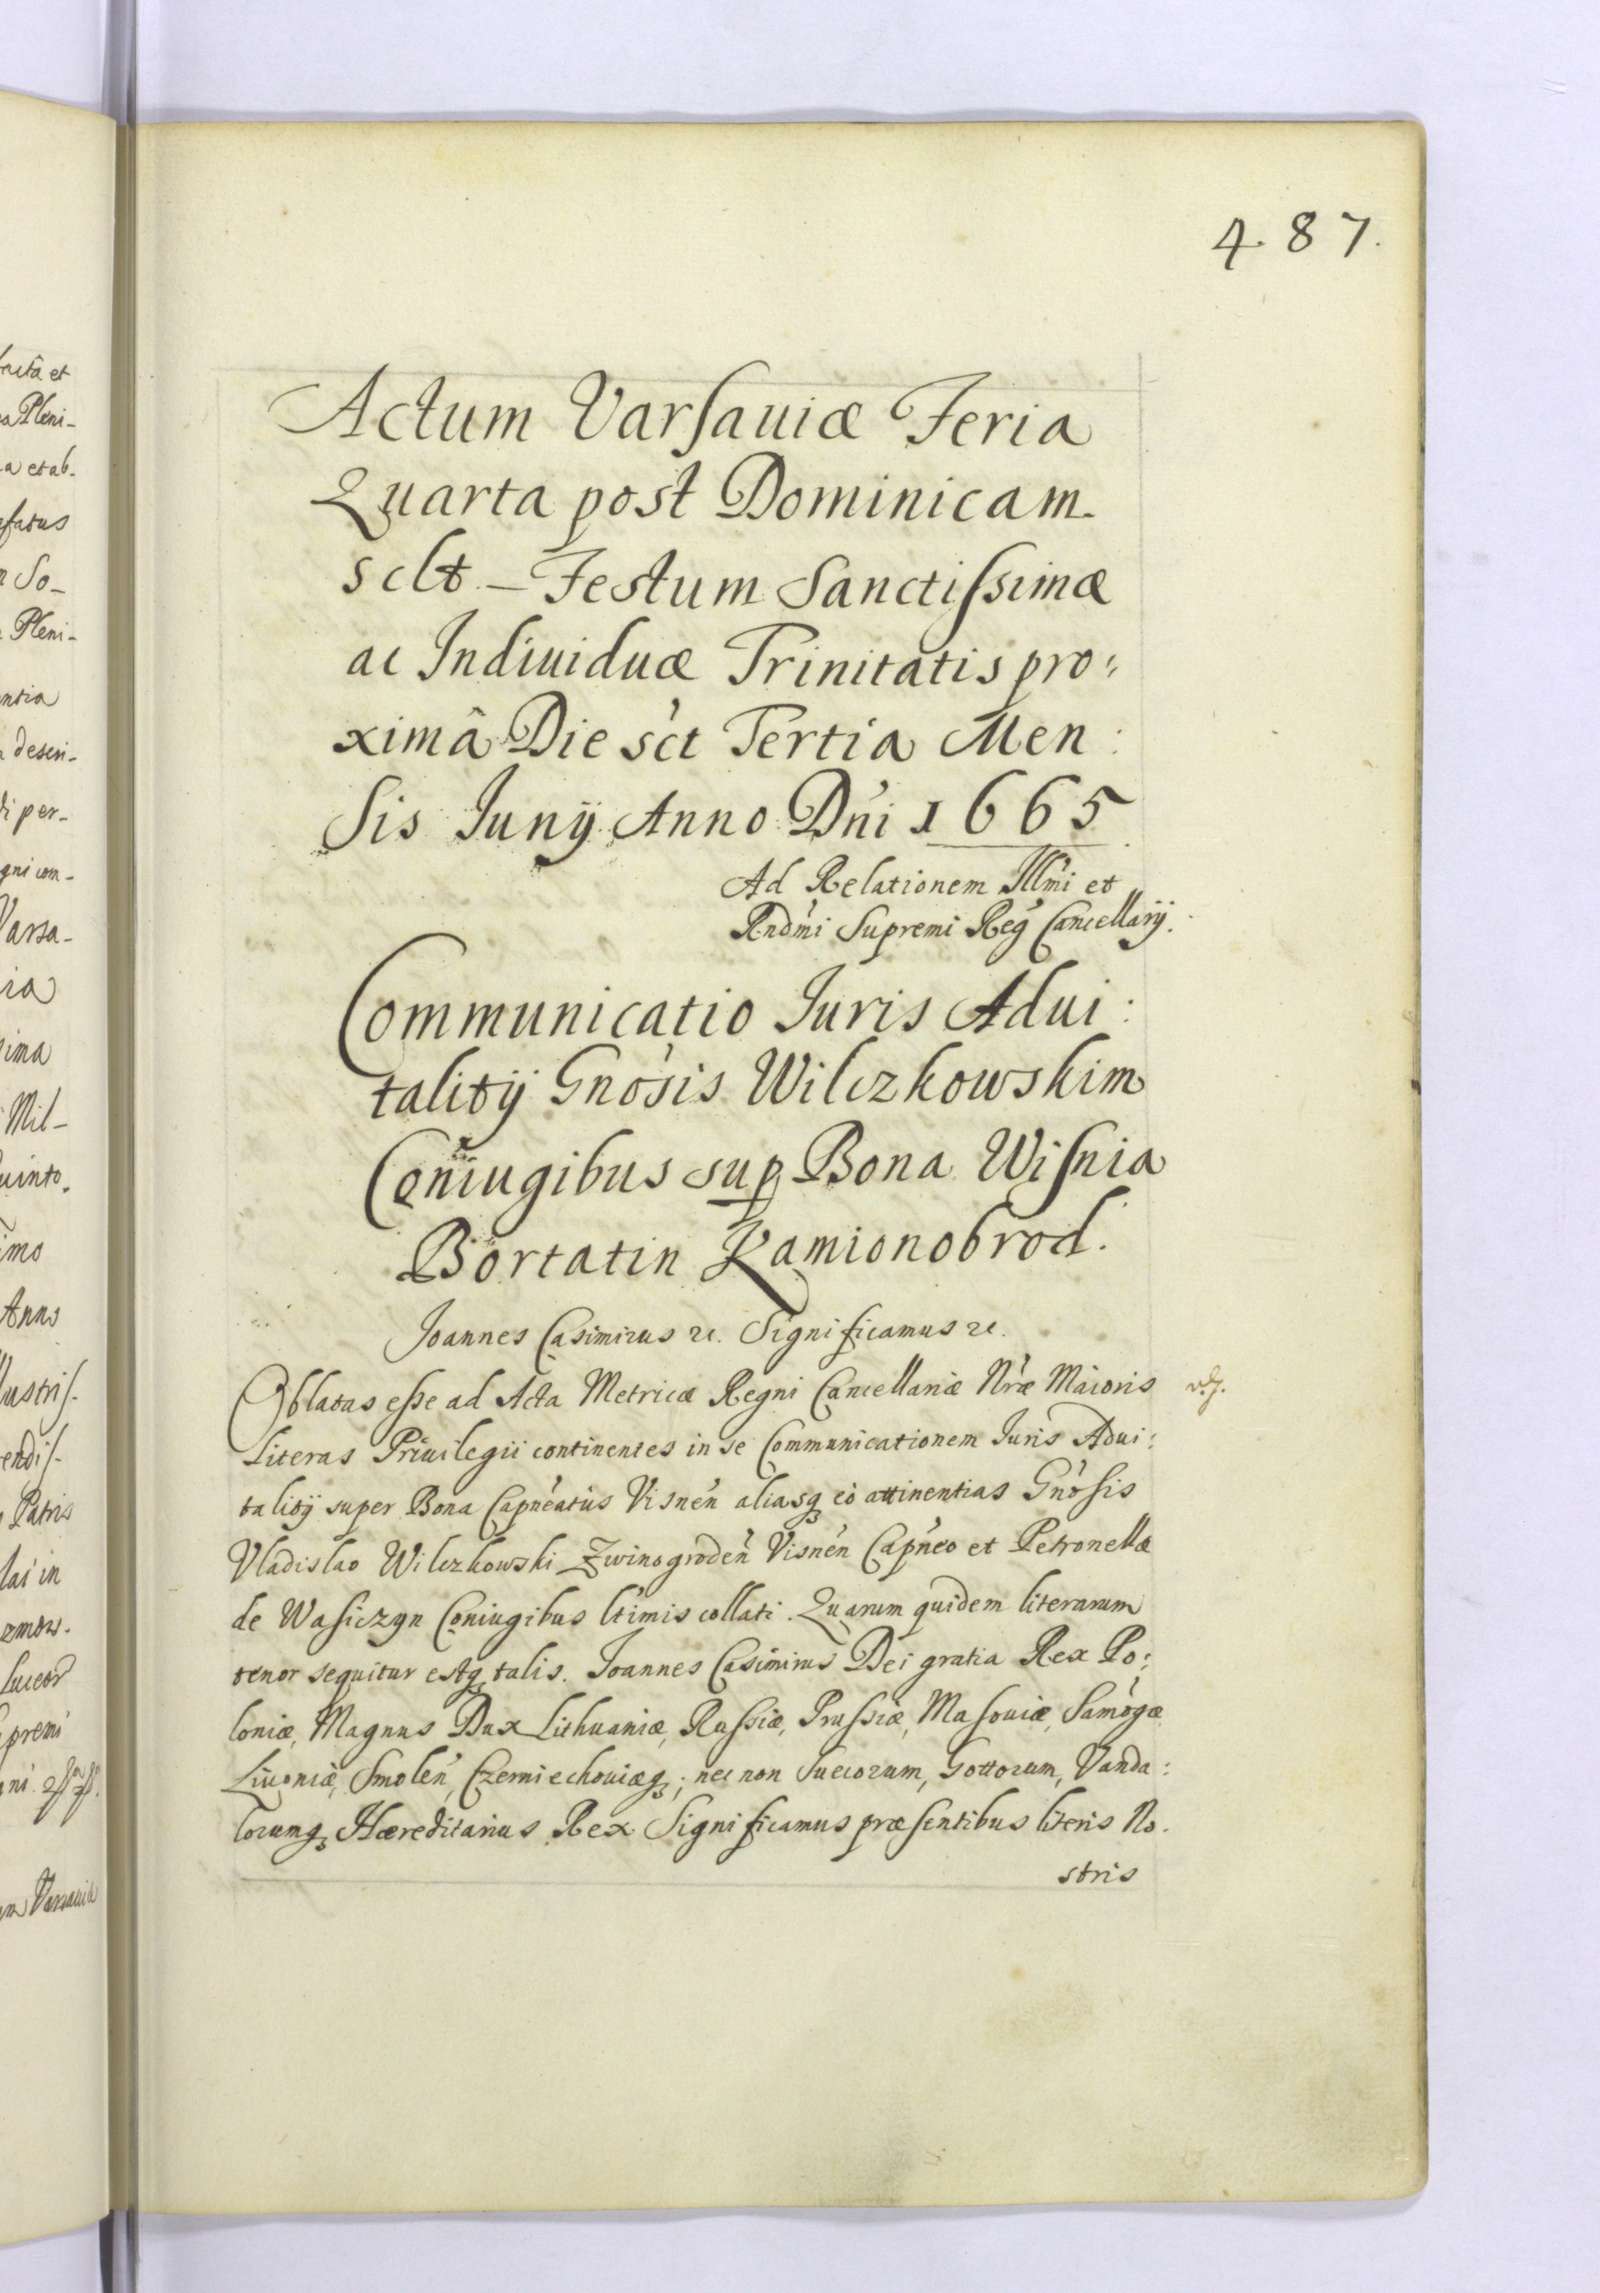 4.87.
Actum Varsauiæ Feria
Quarta post Dominicam
sclt – Festum Sanctissimæ
ac Indiuiduæ Trinitatis pro:
ximâ Die sct Tertia Men:
sis Junÿ Anno Dni 1665
Ad Relationem Illmi et
Rndmi Supremi Reg Cancellarÿ.
Communicatio Juris Adui:
talitÿ Gnosis Wilczkowskim
Coniugibus sup Bona Wisnia
Bortatin Kamionobrod.
Joannes Casimirus &c. Significamus &c.
Oblatas esse ad Acta Metricæ Regni Cancellariæ Nræ Maioris
Literas Priuilegii continentes in se Communicationem Juris Adui:
talitÿ super Bona Capneatus Visnen aliasq eo attinentias Gnosis
Vladislao Wilczkowski Zwinogroden Visnen Capneo et Petronellæ
de Wasiczyn Coniugibus ltimis collati. Quarum quidem literarum
tenor sequitur estq talis. Joannes Casimirus Dei gratia Rex Po:
loniæ, Magnus Dux Lithuaniæ, Russiæ, Prussiæ, Masouiæ, Samogæ
Liuoniæ, Smolen, Czerniechouiæq; nec non Suecorum, Gottorum, Vanda:
lorumq Hæreditarius Rex Significamus præsentibus literis No-
stris
factâ et
Pleni-
a et ab-
So-
Pleni-
descri-
per-
Varsa-
Mil-
Anno
Patris
in
premi
Varsauiæ